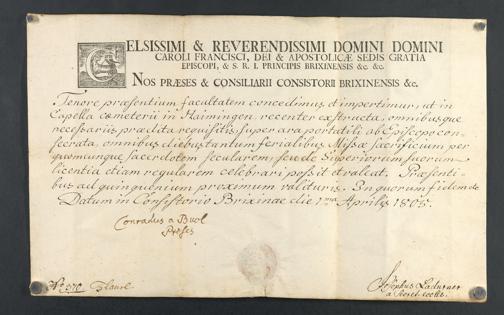 CELSISSIMI & REVERENDISSIMI DOMINI DOMINI
CAROLI FRANCISCI, DEI & APOSTOLICÆ SEDIS GRATIA
EPISCOPI, & S. R. I. PRINCIPIS BRIXINENSIS &c. &c.
NOS PRÆSES & CONSILIARII CONSISTORII BRIXINENSIS &c.
Tenore præsentium facultatem concedimus et impertimur, ut in
Capella cœmeterii in Haimingen recenter exstructa, omnibusque
necessariis prædita requisitis, super ara portatili ab Episcopo con-
secrata, omnibus diebus tantum ferialibus Missæ sacrificium per
quemcunque Sacerdotem sæcularem, seu de Superiorum suorum
licentia etiam regularem celebrari possit et valeat. Præsenti-
bus ad quinquennium proximum valituris. In quorum fidem &c.
Datum in Consistorio Brixinæ die 1ma Aprilis 1805.
Conradus a Buol
Præses
Nº 370
Josephus Ladurner
a Secret.